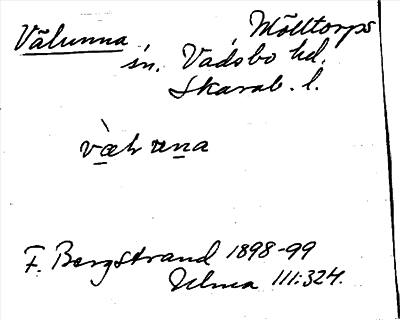 Vălunna, Mölltorps
sn. Vadsbo hd.
Skarab. l.
F. Bergstrand 1898-99
Ulma 111:324.